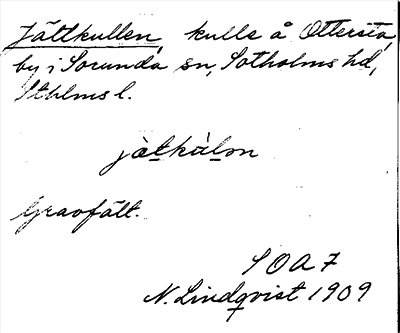 Jättkullen, kulle å Ottersta
by i Sorunda sn, Sotholms hd,
Sthlms l.
jätkälṇ
Gravfält.
SOA 7
N. Lindqvist 1909